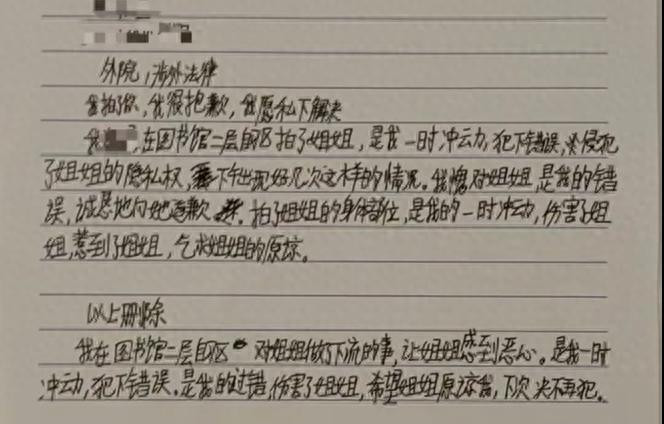 外院，涉外法律
我拍了你，我很抱歉，我愿私下解决
我 在图书馆二层自习区拍了姐姐，是我一时冲动，犯下错误，侵犯
了姐姐的隐私权，下午出现好几次这样的情况。我愧对姐姐，是我的错
误，诚恳地向她道歉，拍了姐姐的身体部位，是我的一时冲动，伤害了姐
姐，惹到了姐姐，乞求姐姐的原谅。
以上删除
我在图书馆二层自习区 对姐姐做了下流的事，让姐姐感到恶心。是我一时
冲动，犯下错误。是我的过错，伤害了姐姐，希望姐姐原谅我，下次决不再犯。